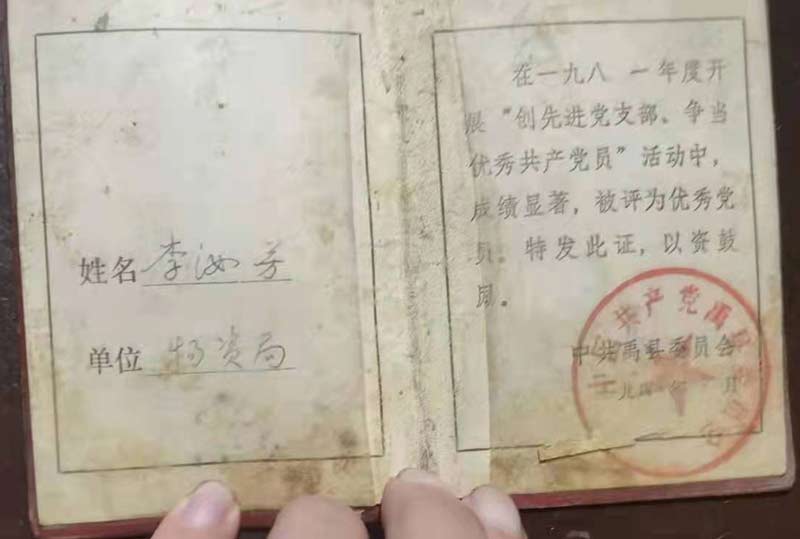 姓名 李汝芳
单位 物资局
在一九八一年度开
展“创先进党支部、争当
优秀共产党员”活动中，
成绩显著，被评为优秀党
员。特发此证，以资鼓
励。
中共禹县委员会
共产党禹